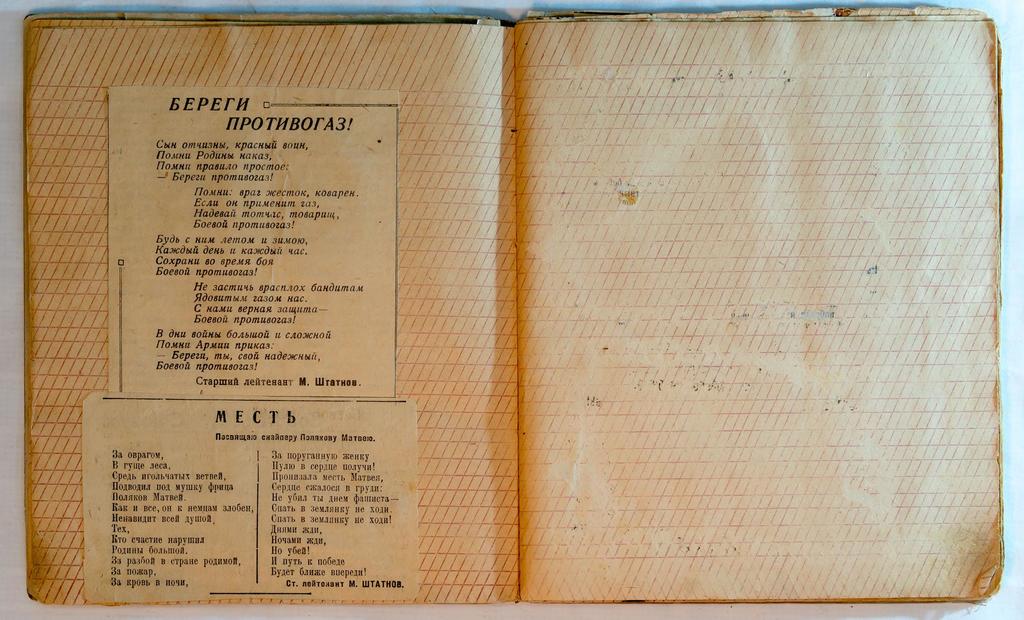 БЕРЕГИ
ПРОТИВОГАЗ!
Сын отчизны, красный воин,
Помни Родины наказ,
Помни правило простое:
— Береги противогаз!
Помни: враг жесток, коварен.
Если он применит газ,
Надевай тотчас, товарищ,
Боевой противогаз!
Будь с ним летом и зимою,
Каждый день и каждый час.
Сохрани во время боя
Боевой противогаз!
Не застичь врасплох бандитам
Ядовитым газом нас.
С нами верная защита—
Боевой противогаз!
В дни войны большой и сложной
Помни Армии приказ:
— Береги, ты, свой надежный,
Боевой противогаз!
Старший лейтенант М. Штатнов.
МЕСТЬ
Посвящаю снайперу Полякову Матвею.
За оврагом,
В гуще леса,
Средь игольчатых ветвей,
Подводил под мушку фрица
Поляков Матвей.
Как и все, он к немцам злобен,
Ненавидит всей душой,
Тех,
Кто счастие нарушил
Родины большой.
За разбой в стране родимой,
За пожар,
За кровь в ночи,
За поруганную женку
Пулю в сердце получи!
Пронизала месть Матвея,
Сердце сжалося в груди:
Не убил ты днем фашиста—
Спать в землянку не ходи.
Спать в землянку не ходи!
Днями жди,
Ночами жди,
Но убей!
И путь к победе
Будет ближе впереди!
Ст. лейтенант М. ШТАТНОВ.